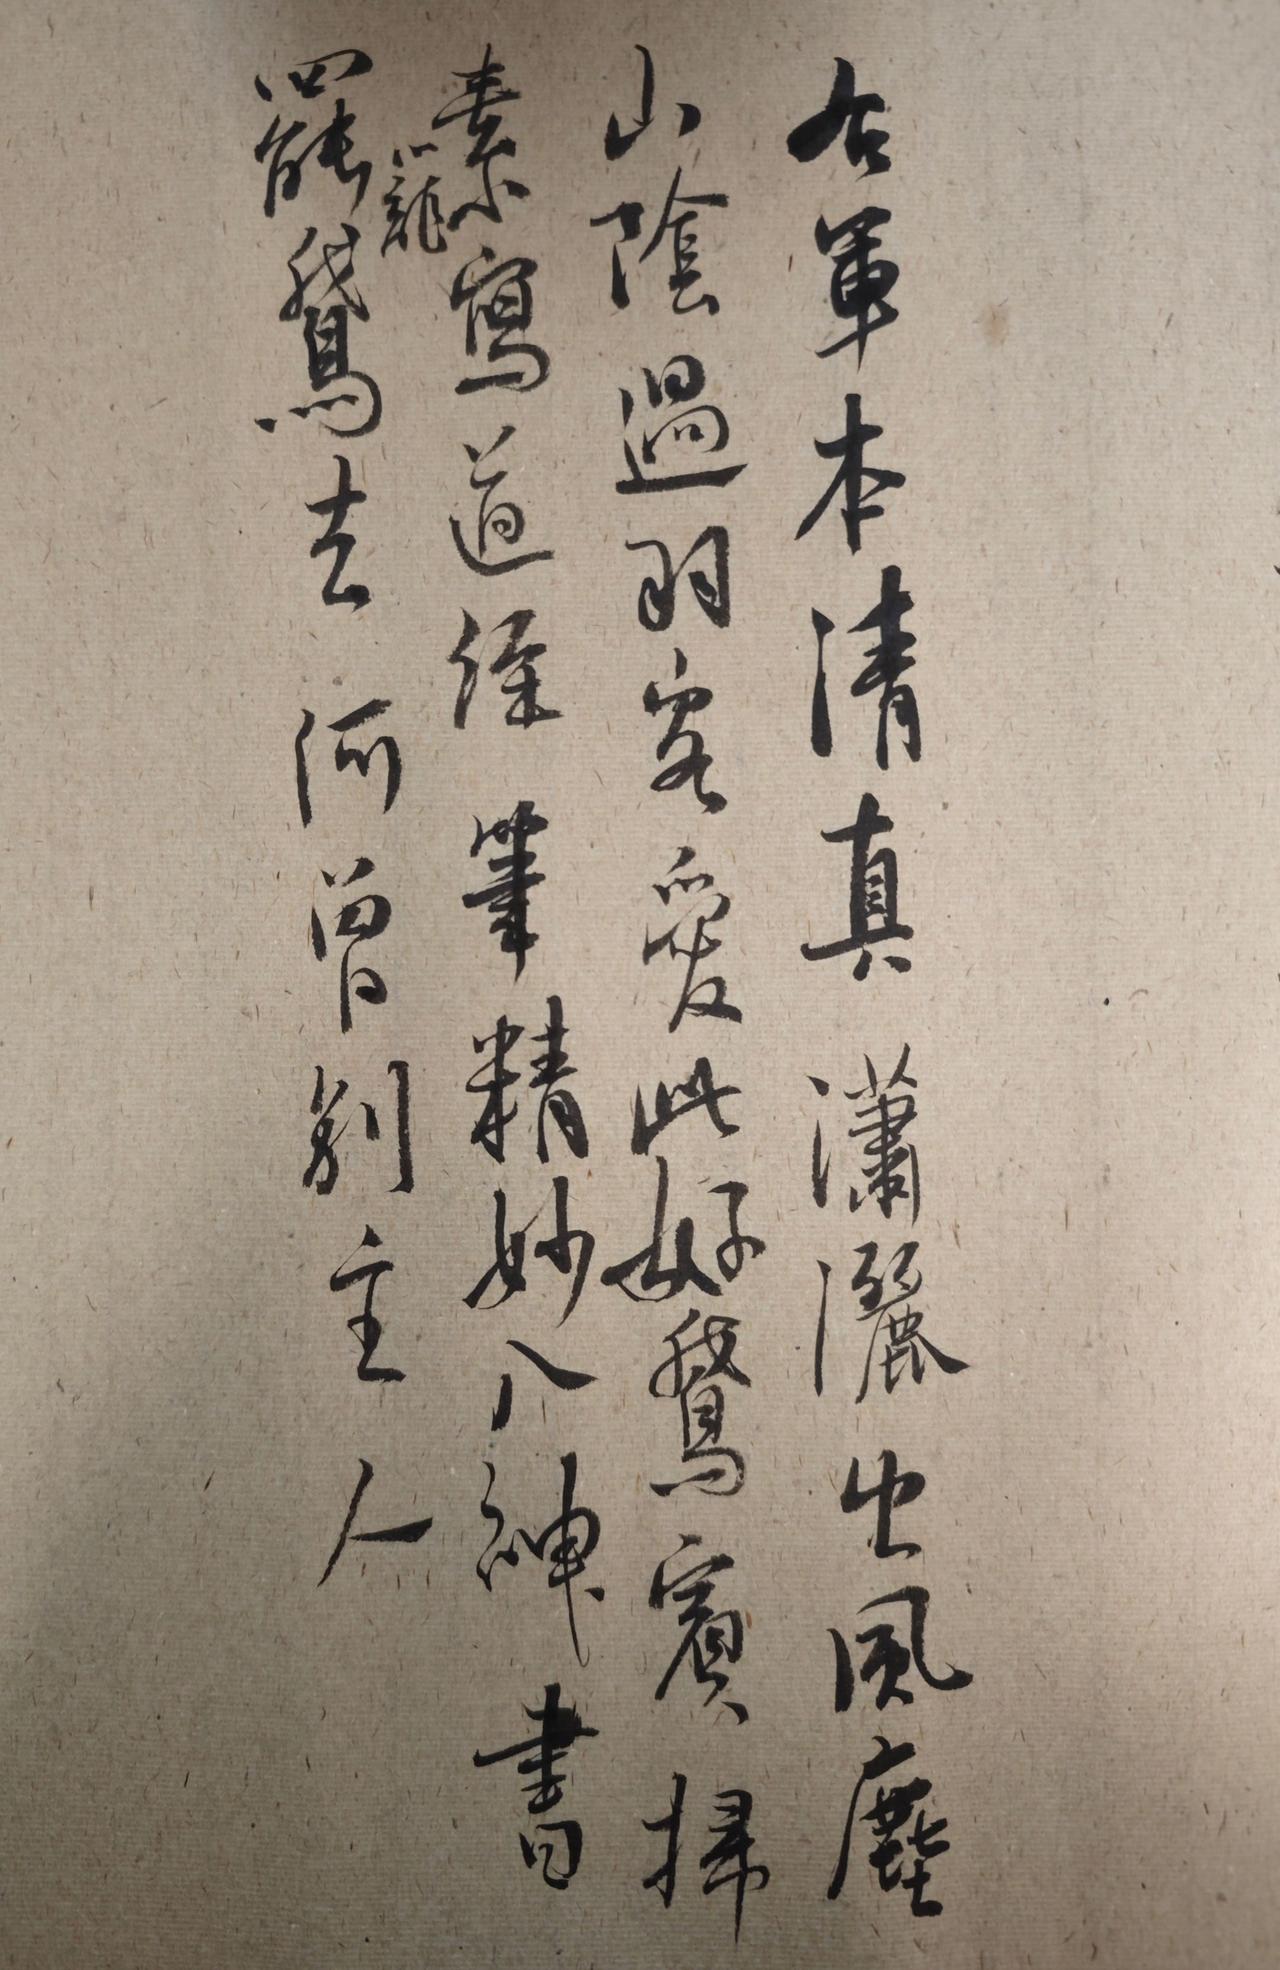 右軍本清真瀟灑出風塵
山陰過羽客愛此好鵞賓掃
素寫道經筆精妙入神書
罷籠鵞去何曾別主人